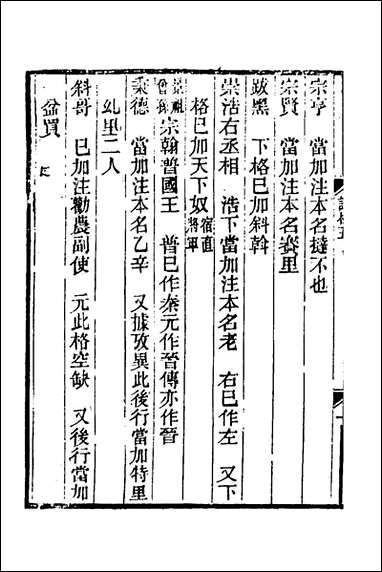 宗亨　當加注本名撻不也
宗賢　當加注本名賽里
跋黑　下格已加斜斡
崇浩右丞相　浩下當加注本名老　右已作左　又下
格已加天下奴宿直將軍
宗翰晉國王　晉已作秦元作晉傳亦作晉
秉德　當加注本名乙辛　又據攷異此後行當加特里
糺里二人
斜哥　已加注勸農副使　元此格空缺　又後行當加
盆買